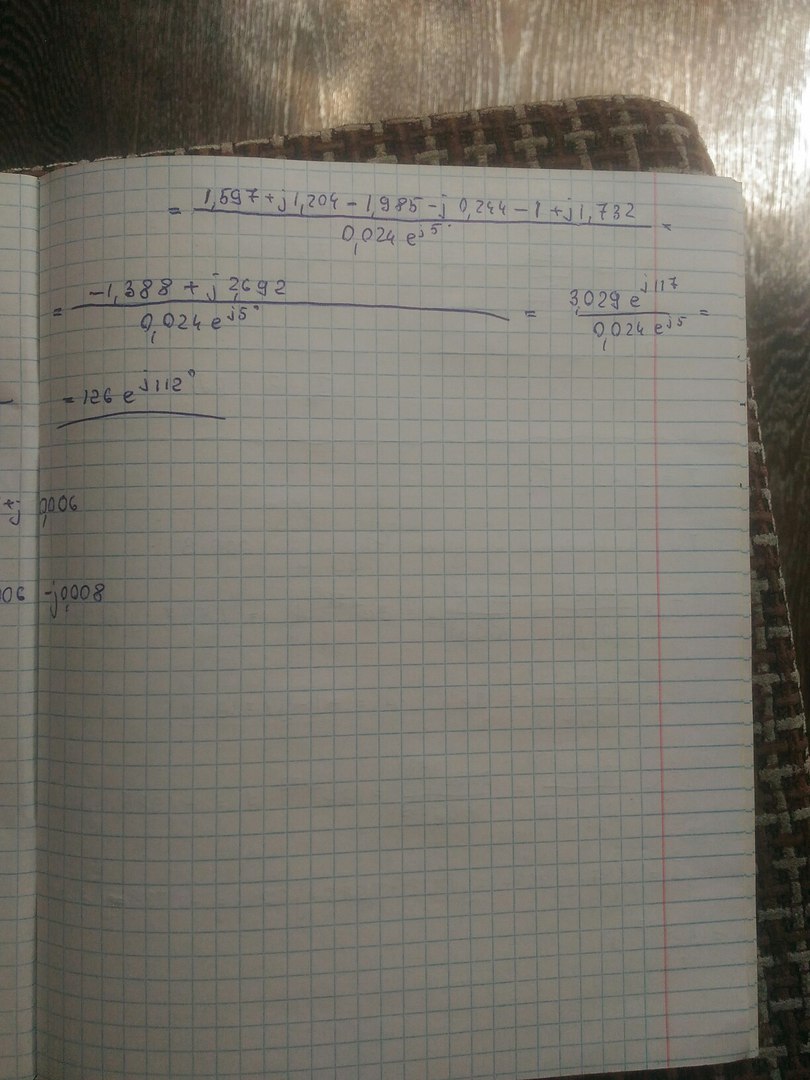 = 1,597 + j 1,204 - 1,985 - j 0,244 - 1 + j 1,732 / 0,024 e^j5° =
= -1,388 + j 2,692 / 0,024 e^j5° = 3,029 e^j117 / 0,024 e^j5 =
= 126 e^j112°
+j 0,006
006 - j0,008